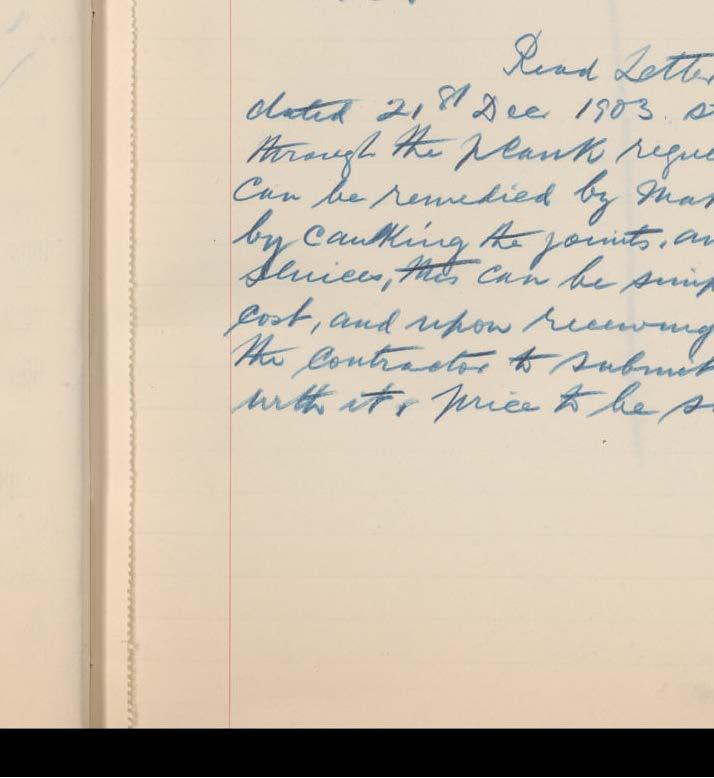 Read Letter
dated 21st Dec 1903 s
through the plank reque
Can be remedied by Ma
by Caulking the joints, an
Sluices, this can be simp
Cost, and upon receiving
the Contractor to submit
with it, price to be s